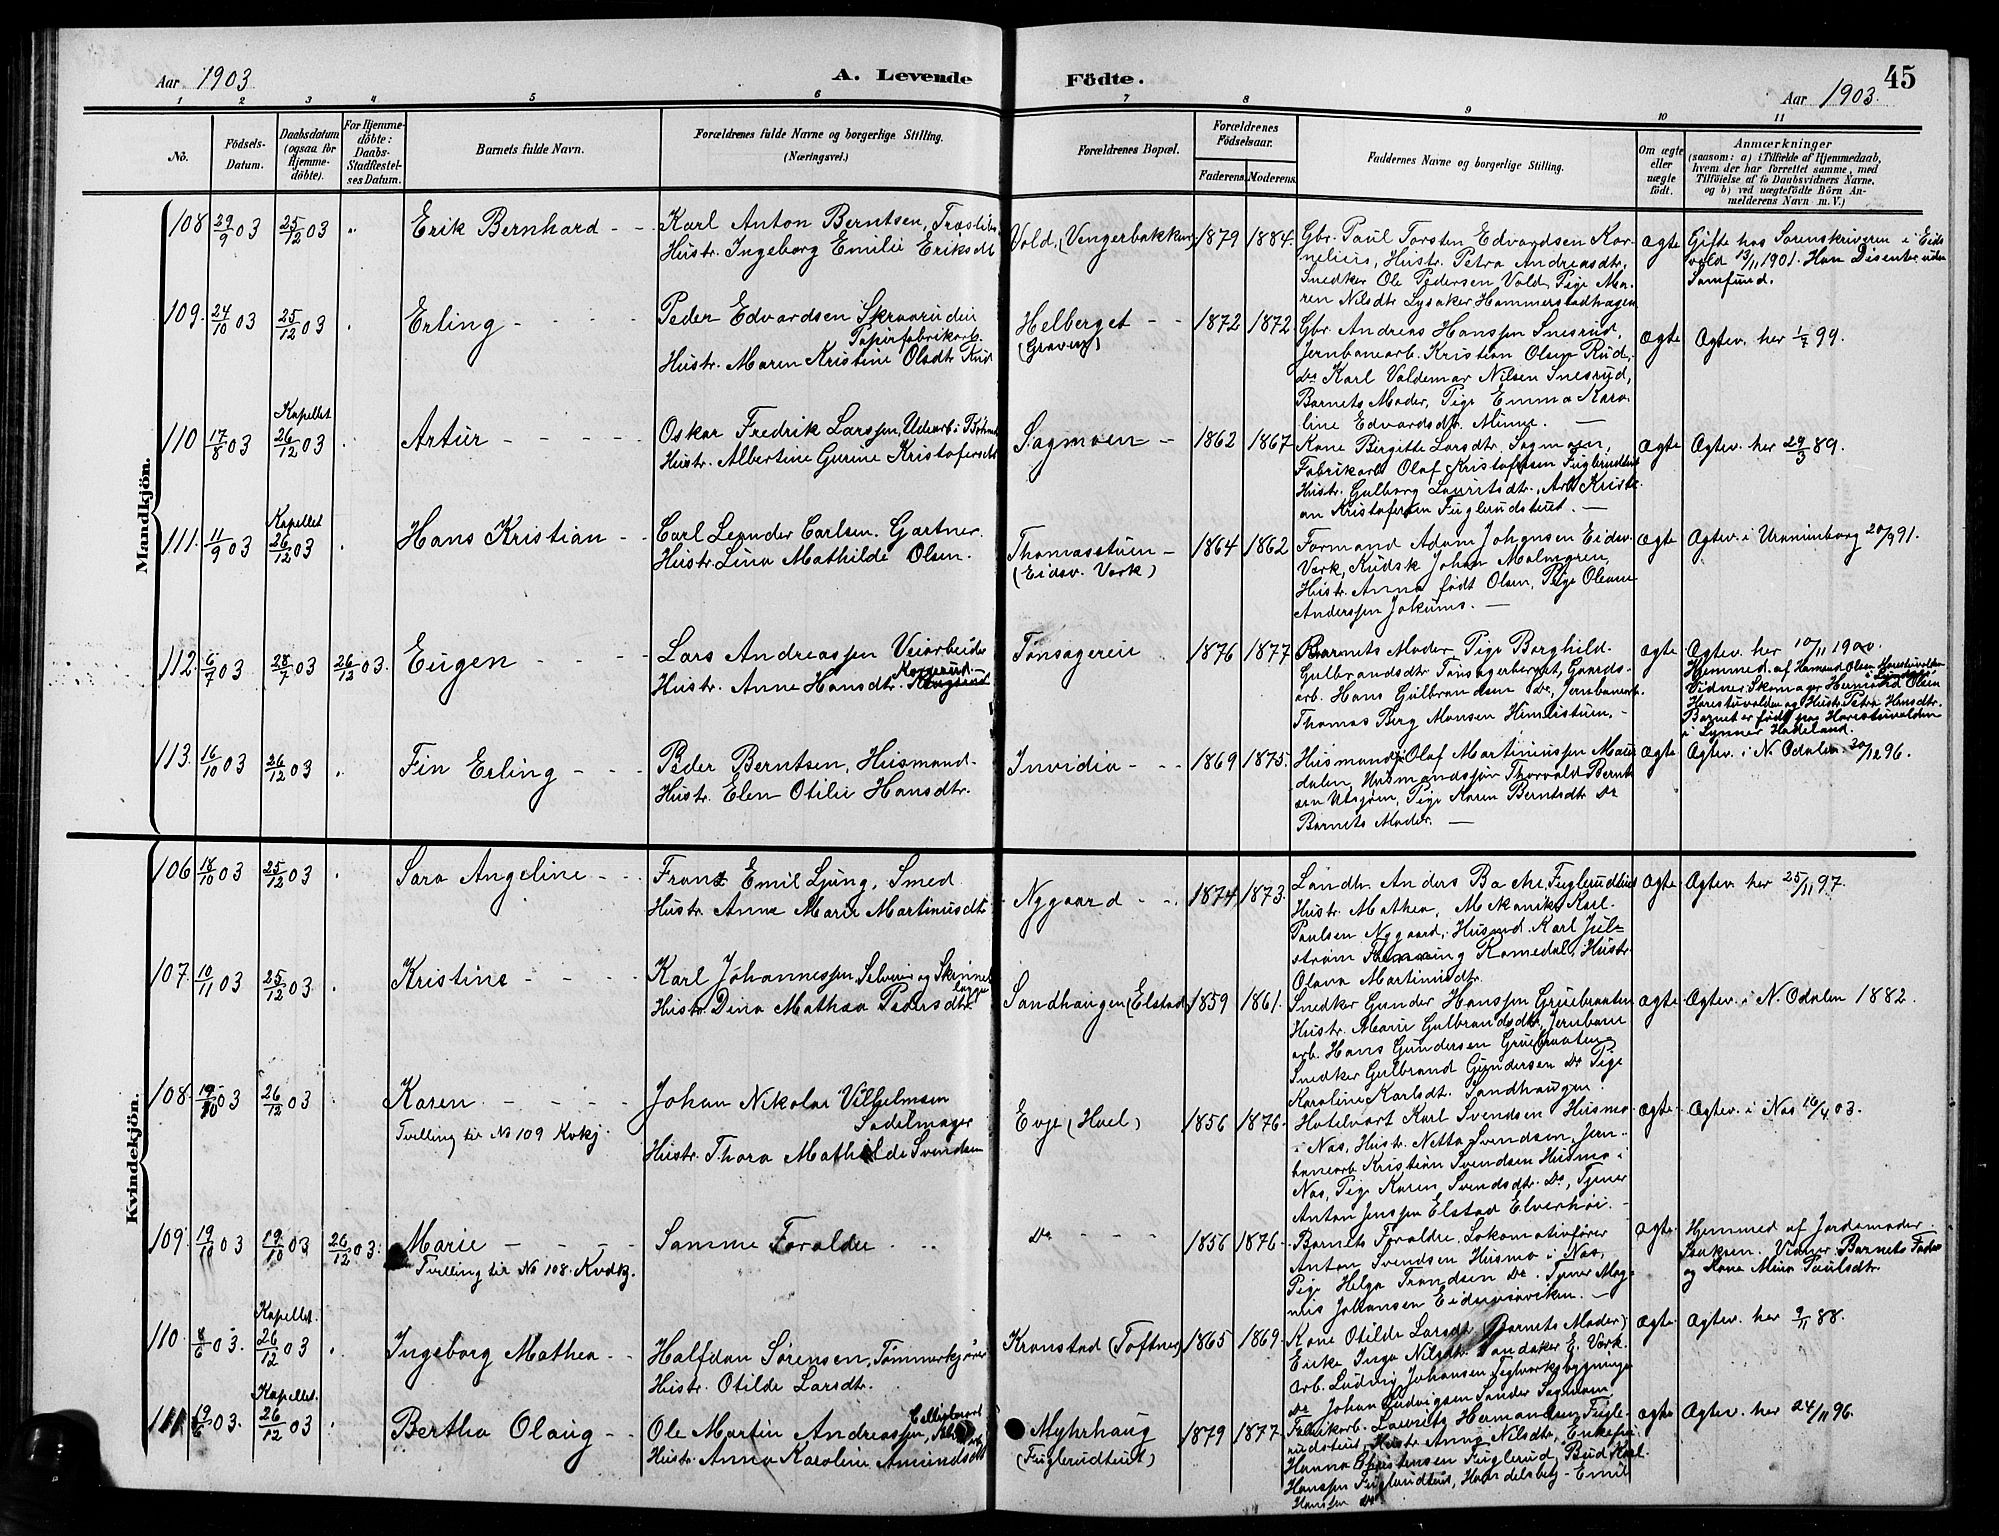 Aar 1903
A. Levende Födte.
45
Aar 1903.
1 2 3 4 5 6 7 8 9 10 11
No.
Födsels-Datum.
Daabsdatum (ogsaa for Hjemme-döbte).
For Hjemme-döbte: Daabs-Stadfæstel-ses Datum.
Barnets fulde Navn.
Forældrenes fulde Navne og borgerlige Stilling.
(Næringsvei.)
Forældrenes Bopæl.
Forældrenes Födselsaar.
Faderens. Moderens.
Faddernes Navne og borgerlige Stilling.
Om ægte eller uægte födt.
Anmærkninger
(saasom: a) i Tilfælde af Hjemmedaab,
hvem der har forrettet samme, med
Tilföielse af to Daabsvidners Navne,
og b) ved uægtefödte Börn An-
melderens Navn m. V.)
Mandkjön.
108 29/9 03 25/12 03 Erik Bernhard - - Karl Anton Berntsen,
Hustr. Ingeborg Emilie Eriksdt.
Vold, (Vengerbakken) 1879 1884.
Gbr. Paul Torsten Edvardsen Kor-
nelius, Hustr. Petra Andreasdtr,
Snedker Ole Pedersen Vold, Pige Ma-
ren Nilsdtr Lysaker Hammerstadhagen
ægte
Gifte hos Sorenskriveren i Eids
vold 13/11 1901. Han Disenter uden
Samfund.
109. 24/10 03 25/12 03 Erling - - - - Peder Edvardsen
Papirfabrikarb.
Hustr. Maren Kristine Olsdtr
Helberget - -
1872 1872
Gbr. Andreas Hanssen Snesrud,
Jernbanearb. Kristian Olsen Rud,
Do Karl Valdemar Nilsen Snesrud,
Barnets Moder, Pige Emma Karo-
line Edvardsdt. Minne. —
ægte Ægtev. her 1/7 99.
110 17/8 03 Kapellet 26/12 03 Artur - - - - - Oskar Fredrik Larssen,
Hustr. Albertine Gurine Kristofersdt
Sagmoen - 1862 1867
Kone Birgitte Larsdtr. Sagmoen,
Fabrikarb. Olaf Kristofersen Fuglerudteiet
Hustr. Gulborg Lauritsdtr. Arb. Kristi-
an Kristofersen Fuglerudsteiet. —
ægte Ægtev. her 29/3 89.
111. 11/9 03 Kapellet 26/12 03 Hans Kristian - - Carl Leander Carlsen. Gartner.
Hustr. Lina Mathilde Olsen.
Thomasstuen -
(Eidsv. Verk)
1864 1862
Formand Adam Johansen Eidsv.
Verk, Kudsk Johan Malmgren,
Hustr. Anna født Olsen, Pige Oleane
Anderssen Jokums. —
ægte Ægtev. i Uranienborg 20/9 91.
112. 6/7 03 28/7 03 26/12 03. Eugen - - - - Lars Andreassen Veiarbeider
Hustr. Anne Hansdtr.
Tønsagereie 1876 1877
Barnets Moder, Pige Borghild
Gulbrandsdtr Tønsagerberget, Gaards-
arb. Hans Gulbrandsen Do, Jernbanearb.
Thomas Berg Monsen Himlistuen. -
ægte Ægtev. her 10/11 1900.
Hjemmed. af Hermand Olsen Harestuvolden
Vidner Skomager Hermand Olsen
Harestuvolden og Hustr. Petra Hansdtr.
Barnet er født paa Harestuvolden
i Lynner Hadeland.
113. 16/10 03 26/12 03 Fin Erling - - - Peder Berntsen, Husmand.
Hustr. Elen Otilie Hansdtr.
Invidia - - - 1869 1875.
Husmand Olaf Martiniussen
dalen, Husmandssøn Thorvald Bernt
sen Utsjøen, Pige Karen Berntsdtr Do
Barnets Moder. —
ægte Ægtev. i N. Odalen 30/12 96.
Kvindekjön.
106 18/10 03 25/12 03 Sara Angeline - - Frans Emil Ljung, Smed
Hustr. Anne Marie Martinusdtr
Nygaard - - 1874 1873.
Landh. Anders Bache, Fuglerudteiet
Hustr. Mathea, Mekaniker Karl
Paulsen Nygaard, Husmd. Karl Jul-
strøm Romedal, Hustr.
Olava Martinusdtr.
ægte Ægtev. her 25/11 97.
107. 10/11 03 25/12 03 Kristine - - - - Karl Johannessen Selveier og
Hustr. Dina Mathea Pedersdtr
Sandhaugen (Elstad) 1859 1861.
Snedker Gunder Hanssen Gruebraaten
Hustr. Marie Gulbrandsdtr, Jernbane
arb. Hans Gundersen Gruebraaten
Snedker Gulbrand Gundersen Do Pige
Karoline Karlsdt. Sandhaugen.
ægte Ægtev. i N. Odalen 1882.
108. 19/10 03 26/12 03 Karen - - - -
Tvilling til No 109 Kvkj.
Johan Nikolai Vilhelmsen
Sadelmager
Hustr. Thora Mathilde Svendsen
Evje (Hoel) 1856 1876.
Hotelvært Karl Svendsen Husmo
i Næs, Hustr. Netta Svendsen, Jern-
banearb Kristian Svendsen Husmo i
Næs, Pige Karen Svendsdtr. Do, Tjener
Anton Jenssen Elstad Elverhøi. -
ægte Ægtev. i Næs 16/4 03.
109. 19/10 03 19/10 03 26/12 03. Marie - - - -
Tvilling til No 108. Kvdkj.
Samme Forældre
Do - - - 1856 1876.
Barnets Forældre, Lokomotivfører
Anton Svendsen Husmo i Næs,
Pige Helga Trondsen Do. Tjener Mag-
nus Johansen —
ægte Hjemmed af Jordemoder
Vidner Barnets Fader
og Kone Paulsdtr.
110. 8/6 03. Kapellet. 26/12 03 Ingeborg Mathea - - Halfdan Sørensen, Tømmerkjører
Hustr. Otilde Larsdtr.
Kronstad (Toftner) 1865 1869.
Kone Otilde Larsdtr. (Barnets Moder)
Enke Inga Nilsdtr. E. Verk.
Arb. Ludvig Johansen
Do Johan Ludvigsen Sander Sagmoen.
ægte. Ægtev. her 9/11 88.
111 19/6 03. Kapellet. 26/12 03 Bertha Olaug - - Ole Martin Andreassen,
Hustr. Anna Karoline Amundsdt
Myhrhaug
(Fuglerudteiet)
1879 1877
Fabrikarb. Laurits Hermandsen Fugle-
rudsteiet, Hustr. Anna Nilsdtr, Enkefru
Hanna Christensen Fuglerud, Bud Karl
Hanssen Fuglerudteiet, Handelsbetj. Emil
Hanssen Do
ægte Ægtev. her 24/11 96.